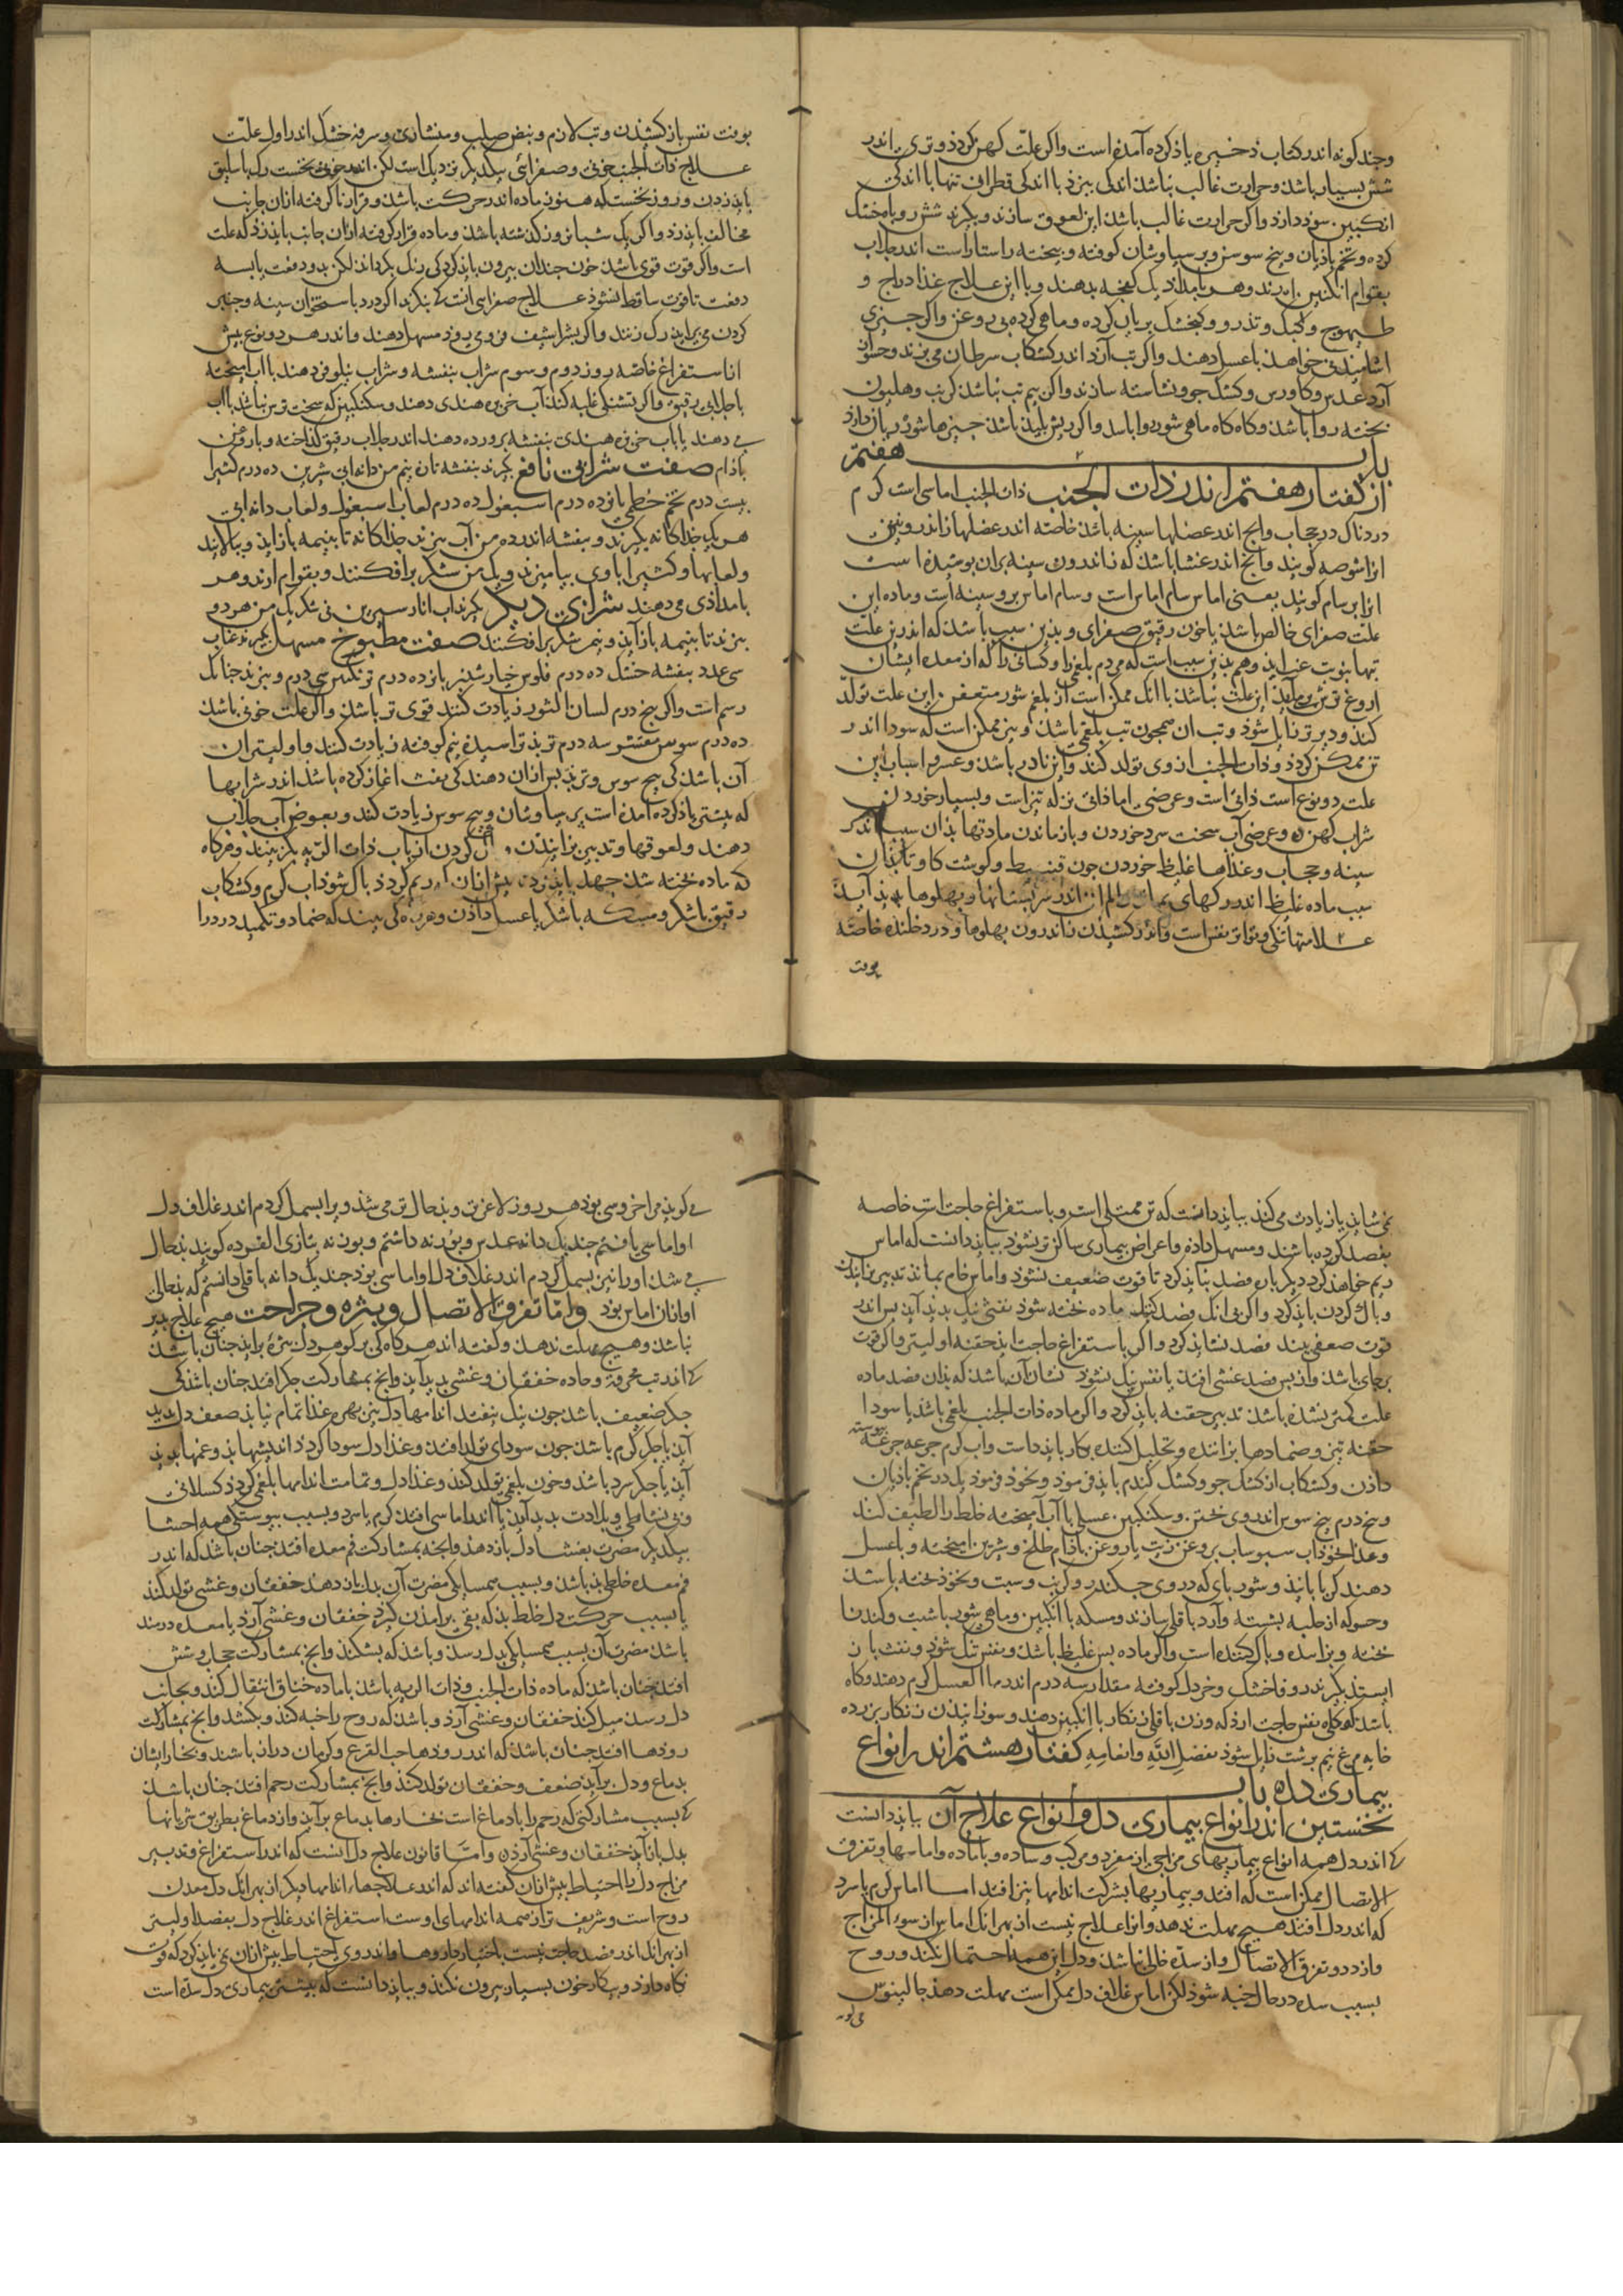 وچند کونه اندر کتاب ذخیره یاذ کرده آمده است واکر علّت کهن کردذ و تری اندر
شش بسیار باشذ وحرارت غالب نباشذ اندکی بیرزد با اندکی قطران تنها با اندکی
انکبین سوذ دارد واکر حرارت غالب باشذ این لعوق سازند و بکیرند شش روباه خشک
کرده و تخم باذیان و بیخ سوسن و برسیاوشان کوفته و بیخته راستاراست اندر جلاب
بقوام انکبین ارند وهر بامداذ یک کفچه بدهند و با این علاج غذا دراج و
طیهوج وکبک و تذرو وکنجشک بریان کرده و ماهی کرده بی روغن واکر چیزی
اشامیدنی خواهذ با عسل دهند واکر تب آرذ اندر کشکاب سرطان می بزند و حسو از
آرد عدس وکاورس وکشک جو و نشاسته سازند واکر بیم تب نباشذ کرنب وهلیون
بخته روا باشذ وکاه کاه ماهی شور روا باشد واکر ریش بلیذ باشذ چیزها شور زیان دارد
باب هفتم
از کفتار هفتم اندر ذات الجنب ذات الجنب اماسی است کرم
دردناک در حجاب وانج اندر عضلها سینه باشذ خاصّه اندر عضلها اندرونین
انرا شوصه کویند وانج اندر غشا باشذ که از اندرون سینه بران بوشیده است
انرا برسام کویند یعنی اماس سام اماس است و سام اماس بر و سینه است و ماده این
علّت صفرای خالص باشذ یا خون رقیق صفرای و بذین سبب باشذ که اندرین علّت
تبها بنوبت غب ایذ و هم بذین سبب است که مردم بلغمی را وکسانی را که از معده ایشان
اروغ ترش برمی آیذ این علّت نباشذ با انک ممکن است از بلغم شور متعفن این علت تولّد
کند و دیرتر زایل شوذ و تب ان همچون تب بلغمی باشذ و نیز ممکن است که سودا اندر
تن ممکن کردذ و ذات الجنب از وی تولد کند واین نادر باشذ و عسر و اسباب این
علت دو نوع است ذاتی است و عرضی اما ذاتی نزله تیز است و بسیار خوردن
شراب کهن و عرضی آب سخت سرد خوردن و باز ماندن مادتها بذان سبب اندر
سینه و حجاب و غذاها غلیظ خوردن چون قنبیط و کوشت کاو تا بذان
سبب ماده غلیظ اندر رکهای اندر شریانها و بهلوها بدید آیذ
علامتها تنکی و تواتر نفس است واندر کشیذن از اندرون بهلوها و درد خلنده خاصّه
بوقت
بوقت نفس باز کشیذن و تب لازم و نبض صلب و منشاری و سرفه خشک اندر اول علّت
علاج ذات الجنب خونی و صفرائی بیکدیکر نزدیک است لکن اندر خونی نخست رک باسلیق
بایذ زدن و روز نخست که هنوز ماده اندر حرکت باشذ و قرار ناکرفته از ان جانب
مخالف بایذ زد واکر یک شبانروز کذشته باشذ و ماده قرار کرفته از ان جانب بایذ زد که علت
است واکر قوت قوی باشذ خون چندان بیرون بایذ کرد کی رنک بکرداند لکن بدو دفعت یا بسه
دفعت تا قوت ساقط نشوذ علاج صفرای انست کی بنکرند اکر درد با ستخوان سینه و چنبر
کردن می براید رک زنند واکر بشراسیف فروی روذ مسهل دهند واندر هر دو نوع بیش
از استفراغ خاصّه روز دوم و سوم شراب بنفشه و شراب نیلوفر دهند با آب امیخته
یا جلابی رقیق واکر تشنکی غلبه کند آب خربزه هندی دهند و سکنکبین که سخت ترش نباشذ با آب
می دهند یا باب خربزه هندی بنفشه برورده دهند اندر جلاب رقیق کذاخته و با روغن
باذام صفت شرابی نافع بکیرند بنفشه تازه نیم من دانه ابی شیرین ده درم کثیرا
بیست درم تخم خطمی بانزده درم اسبغول ده درم لعاب اسبغول و لعاب دانه ابی
هر یک جذاکانه بکیرند و بنفشه اندر ده من آب ببزند جذاکانه تا بنیمه باز ایذ و ببالایند
و لعابها و کثیرا با وی بیامیزند و یک من شکر برافکنند و بقوام ارند وهر
بامداذی می دهند شرابی دیکر بکیرند اب انار شیرین نی شکر یک من هر دو
ببزند تا بنیمه باز آیذ و نیم شکر برافکنند صفت مطبوخ مسهل بکیرند عناب
سی عدد بنفشه خشک ده درم فلوس خیارشنبر بانزده درم ترنکبین سی درم و ببزند چنانک
رسم است واکر بنج درم لسان الثور زیادت کنند قوی تر باشذ واکر علت خونی باشذ
ده درم سوس مقشر سه درم تربذ تراشیده نیم کوفته زیادت کنند و اولیتر ان
آن باشذ کی بیخ سوس و تربذ بس از ان دهند کی نفث اغاز کرده باشذ اندر شرابها
که بیشتر یاذ کرده آمده است برسیاوشان و بیخ سوس زیادت کنند و بعوض آب جلاب
دهند و لعوقها و تدبیر بزانیذن و باک کردن از باب ذات الریه بکزینند و هرکاه
که ماده بخته شذ جهد بایذ کرد تا بیش از ان که ریم کردذ باک شوذ اب کرم و کشکاب
رقیق با شکر و مسکه با شکر یا عسل داذن و هرکه کی بیند که ضماد و تکمید درد را
نمی شاید یا زیادت می کند ببایذ دانست که تن ممتلی است و باستفراغ حاجت است خاصه
بفصد کرده باشند و مسهل داده و اعراض بیماری ساکن تر نشوذ ببایذ دانست که اماس
ریم خواهذ کرد دیکر باره فصد نبایذ کرد تا قوت ضعیف نشوذ و اماس خام بماند تدبیر بزانیدن
و باک کردن بایذ کرد واکر بی انک فصد کنند ماده بخته شوذ نفثی نیک بدید آید بس اندر
قوت ضعفی بیند فصد نشایذ کرد واکر باستفراغ حاجت ایذ حقنه اولیتر واکر قوت
برجای باشذ واز بس فصد غشی افتد یا نفس نیک نشوذ نشان آن باشذ که بذان فصد ماده
علت کمتر نشده باشذ تدبیر حقنه بایذ کرد واکر ماده ذات الجنب بلغمی باشذ یا سودا
حقنه تیز و ضمادها بزاننده و تحلیل کننده بکار بایذ داشت واب کرم جرعه جرعه پیوسته
داذن و کشکاب از کشک جو و کشک کندم بایذ فرموذ و نخوذ فرموذ یک درم تخم باذیان
و بنج درم بیخ سوس اندر وی بختن و سکنکبین عسلی با آب آمیخته خلط را لطیف کند
و غذا نخوذاب سبوساب بروغن زیت یا روغن باذام طلخ و شیرین امیخته و با عسل
دهند کربا بانیذ و شوربای که در وی چکندر و کرنب و شبت و نخوذ بخته باشذ
و حسو که از حلبه بشسته و آرد باقلی سازند و مسکه با انکبین و ماهی شور با شبت و کندنا
بخته و بزاننده و باک کننده است واکر ماده بس غلیظ باشذ و نفس تنک شوذ و نفث باز
ایستد بکیرند زوفا خشک و خردل کوفته مقدار سه درم اندر ماء العسل کرم دهند و کاه
باشذ که تنکی نفس حاجت ارذ که وزن باقلی زنکار با انکبین دهند و سوذ ایذ بس زنکار زرده
خایه مرغ نیم برشت زایل شوذ بفضل الله وانعامه کفتار هشتم اندر انواع
بیماری دل باب
نخستین اندر انواع بیماری دل و انواع علاج آن ببایذ دانست
کی اندر دل همه انواع بیماریهای مزاجی از مفرد و مرکب و ساده و با ماده و اماسها و تفرق
الاتصال ممکن است که افتد و بیماریها بشرکت اندامها نیز افتد اما اماس کرم یا سرد
که اندر دل افتد هیچ مهلت ندهد و انرا علاج نیست از بهر انک اماس از سوء المزاج
و از درد و تفرق الاتصال و از سدّه خالی نباشذ و دل این همه احتمال نکند و روح
بسبب سده در حال خبه شوذ لکن اماس غلاف دل ممکن است مهلت دهذ جالینوس
می کوید
می کویذ مرا خروسی بوذ هر روز لاغرتر و بذحال تر می شذ ویرا بسمل کردم اندر غلاف دل
او اماسی یافتم چند یک دانه عدس و بوزنه داشتم و بوزنه بتازی القرده کویند بذحال
می شذ او را نیز بسمل کردم اندر غلاف دل او اماسی بوذ چند یک دانه باقلی دانستم که بذحالی
او از ان اماس بوذ و اما تفرق الاتصال و بثره و جراحت هیچ علاج بذیر
نباشذ و هیچ مهلت ندهذ و کفته اند هرکاه کی بر کوهر دل بثره برایذ چنان باشذ
کی اندر تب محرقه و حاده خفقان و غشی بدید آید وانج بمشارکت جکر افتد چنان باشذ کی
جکر ضعیف باشذ چون نیک نیفتد اندامها دل نیز بهره غذا تمام نیابذ ضعف دل بدید
آیذ یا جکر کرم باشذ چون سودای تولد افتد و غذا دل سودا کردذ اندیشهاء بذ و غمها بدید
آیذ یا جکر سرد باشذ و خون بلغمی تولد کند و غذا دل و تمامت اندامها بلغمی کردذ کسلانی
و بی نشاطی و بلادت بدید آیذ یا اندر اماسی افتد کرم یا سرد و بسبب پیوستکی همه احشا
بیکدیکر مضرت بغشا دل باز دهذ وانجه بمشارکت فم معده افتد چنان باشذ که اندر
فم معده خلطی بذ باشذ و بسبب همسایکی مضرت آن بدل باز دهذ خفقان و غشی تولد کند
یا بسبب حرکت دل خلط بذ که بقی برامذن کیرد خفقان و غشی آرذ یا معده دردمند
باشذ مضرت آن بسبب همسایکی بدل رسذ و باشذ که بشکند وانج بمشارکت حجاب و شش
افتد چنان باشذ که ماده ذات الجنب و ذات الریه باشذ یا ماده خناق انتقال کند و بجانب
دل رسد میل کند خفقان و غشی آرذ و باشذ که روح را خبه کند و بکشد وانج بمشارکت
روذها افتد چنان باشذ که اندر روذها حب القرع و کرمان دراز باشند و بخار ایشان
بدماغ و دل برایذ ضعف و خفقان تولد کند وانج بمشارکت رحم افتد چنان باشذ
کی بسبب مشارکتی که رحم را با دماغ است بخارها بدماغ برآیذ واز دماغ بطریق شریانها
بدل باز آیذ خفقان و غشی آرذ و امّا قانون علاج دل انست که اندر استفراغ و تدبیر
مزاج دل با احتیاط بیش از ان کفته اند که اندر علاجهاء اندامها دیکر از بهر انک دل معدن
روح است و شریف تر از همه اندامهای اوست استفراغ اندر علاج دل بفصد اولیتر
از بهر انک اندر فصد حاجت نیست باختیار داروها واندر وی احتیاط بیش از ان می بایذ کرد که قوت
نکاه دارد و بیکار خون بسیار بیرون نکند و ببایذ دانست که بیشتر بیماری دل سدّه است